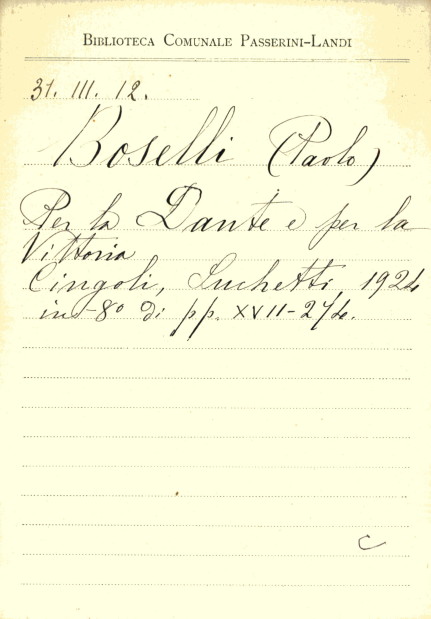 BIBLIOTECA COMUNALE PASSERINI-LANDI
31. III. 12.
Boselli (Paolo)
Per la Dante e per la
Vittoria
Cingoli, Luchetti, 1924
in-8° di pp. XVII-274.
C